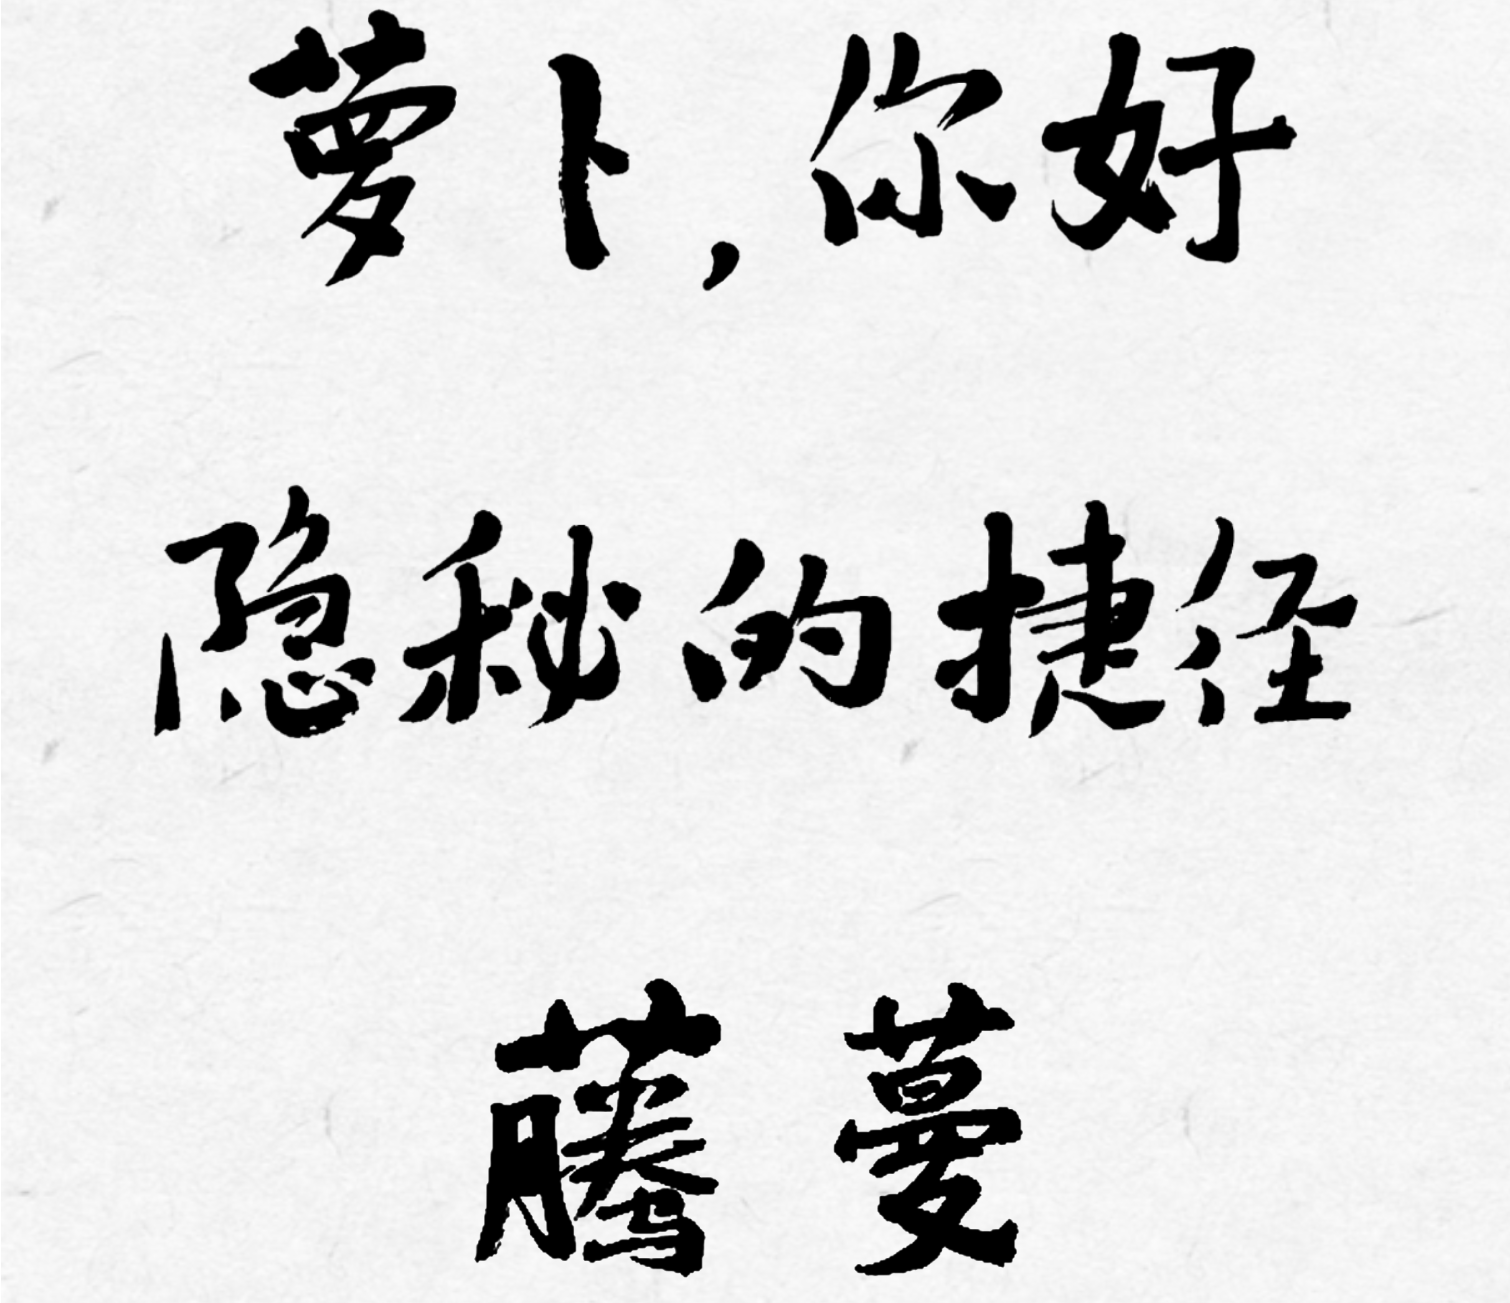 萝卜，你好
隐秘的捷径
藤蔓